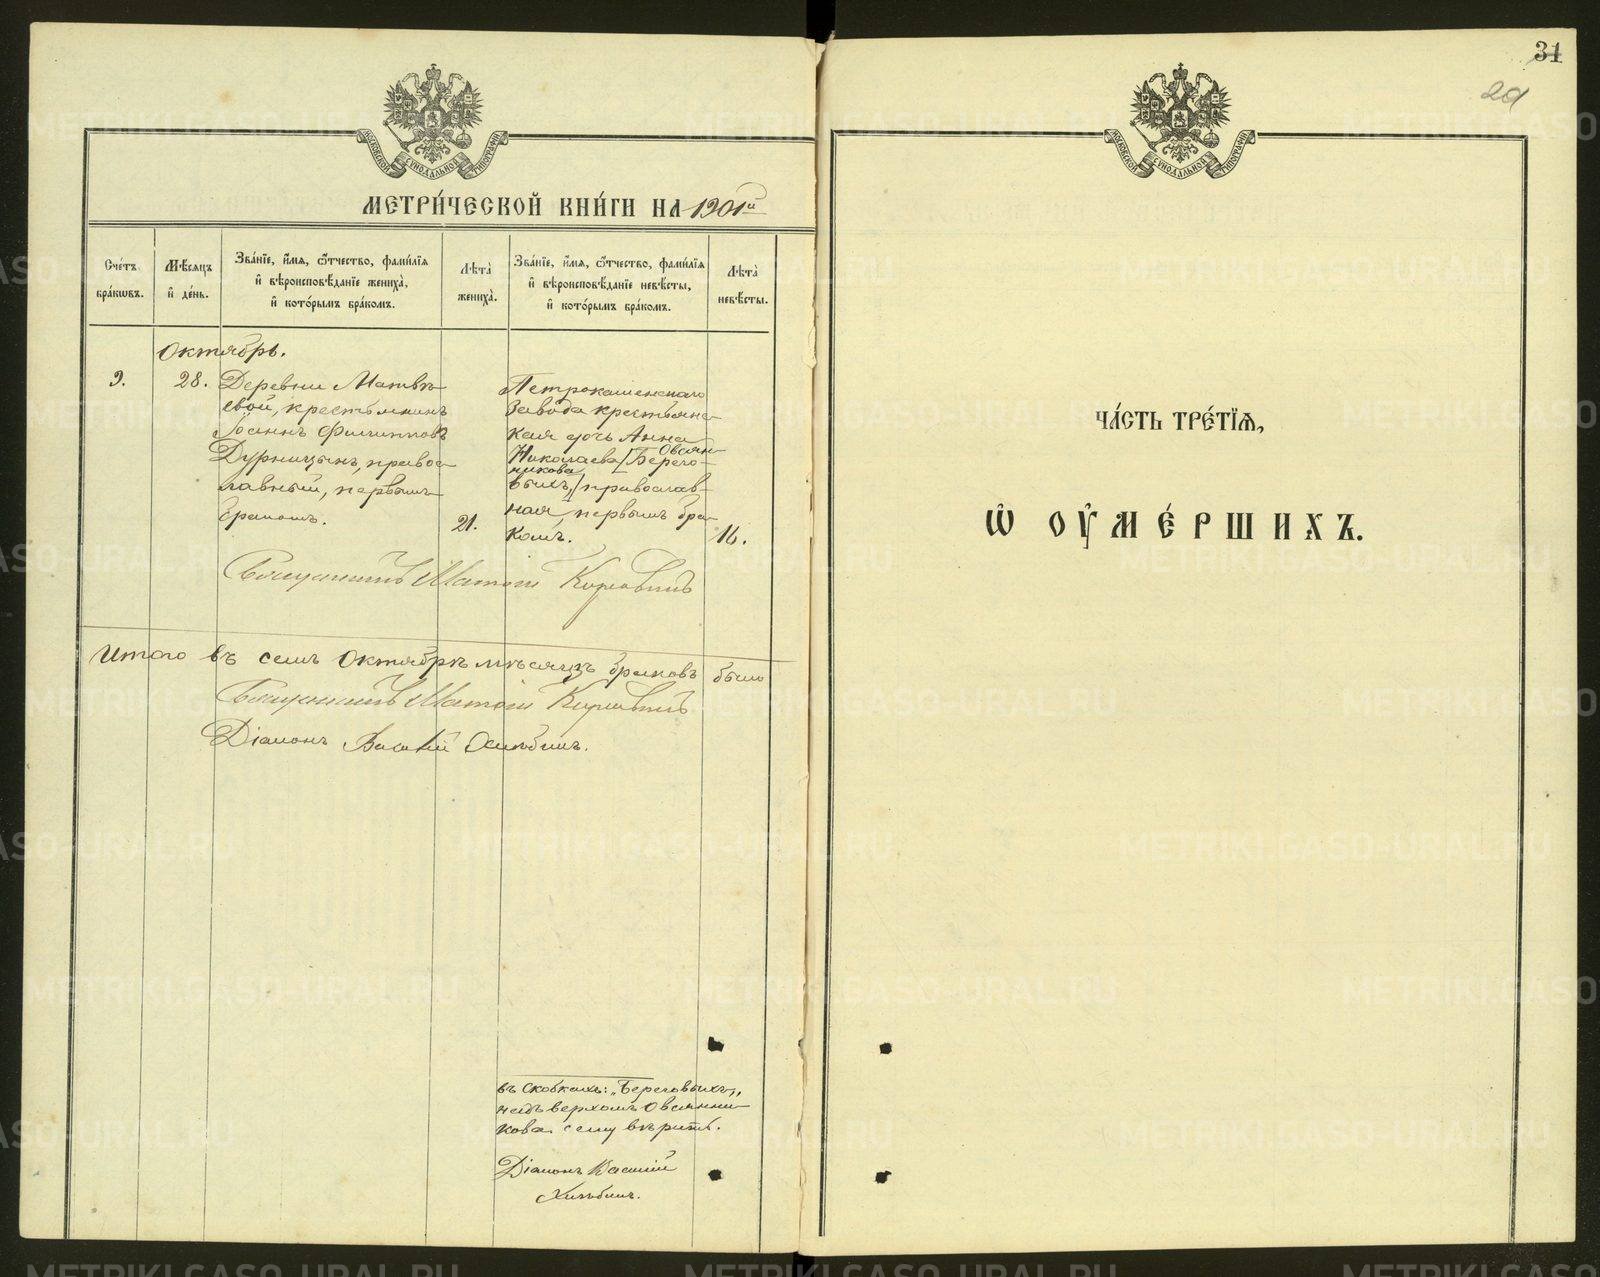 МОСКОВСКОЙ СѴНОДАЛЬНОЙ ТИПОГРАФІИ
МЕТРИ́ЧЕСКОЙ КНИ́ГИ НА 1901й
Счетъ бра́кωвъ.
Мѣ́сяцъ и҆ де́нь.
Зва́нїе, и҆́мѧ, ѻ҆́тчество, фами́лїѧ и҆ вѣроисповѣ́данїе жениха̀, и҆ кото́рымъ бра́комъ.
Лѣта̀ жениха̀.
Зва́нїе, и҆́мѧ, ѻ҆́тчество, фами́лїѧ и҆ вѣроисповѣ́данїе невѣ́сты, и҆ кото́рымъ бра́комъ.
Лѣта̀ невѣ́сты.
Октябрь.
9.
28.
Деревни Матвѣ-
евой, крестьянинъ
Іоаннъ Филипповъ
Дурницынъ, правос-
лавный, первымъ
бракомъ.
21.
Петрокаменскаго
завода крестьянс-
кая дочь Анна
Николаева [Берего-
Овсян-
никова
выхъ,] православ-
ная, первымъ бра-
комъ.
16.
Священникъ
Итого въ семъ Октябрѣ мѣсяцѣ браковъ было
Священникъ
Діаконъ Василій
въ скобкахъ: „Береговыхъ„,
надъ верхомъ Овсянни-
кова. сему вѣрить.
Діаконъ Василій
31
29
МОСКОВСКОЙ СѴНОДАЛЬНОЙ ТИПОГРАФІИ
ЧА́СТЬ ТРЕ́ТЇѦ,
Ѽ ОУ҆МЕ́РШИХЪ.
METRIKI.GASO-URAL.RU